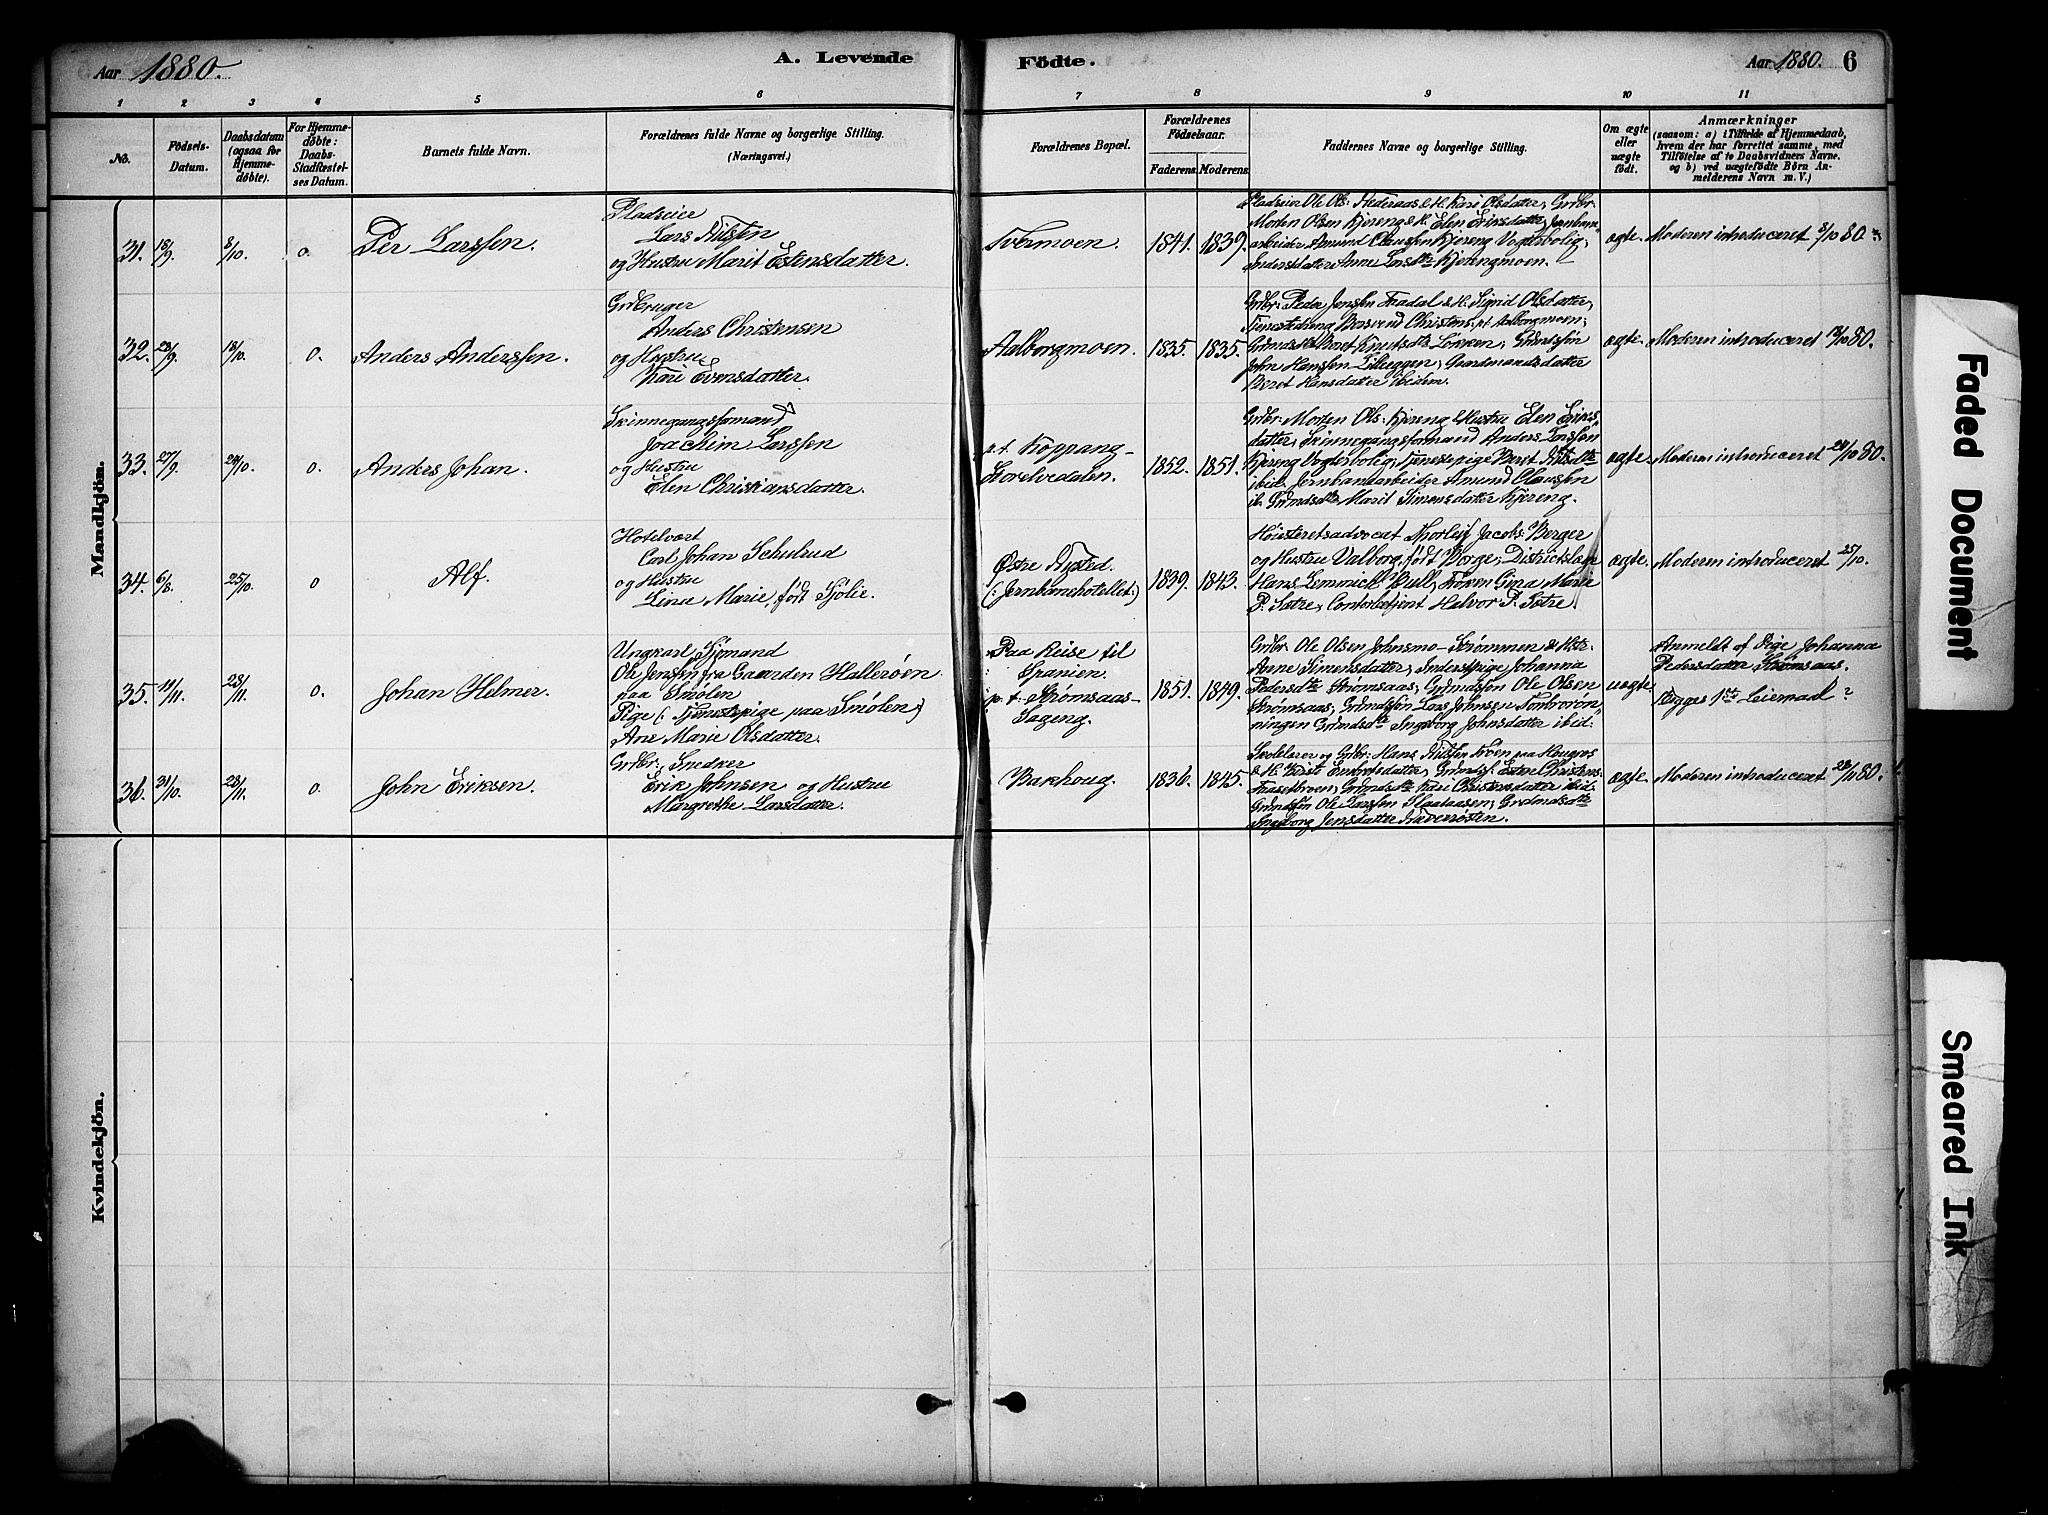 Aar 1880. A. Levende Födte. Aar 1880. 6
1 2 3 4 5 6 7 8 9 10 11
No.
Födsels-Datum.
Daabsdatum (ogsaa for Hjemme-döbte).
For Hjemme-döbte: Daabs-Stadfæstel-ses Datum.
Barnets fulde Navn.
Forældrenes fulde Navne og borgerlige Stilling.
(Næringsvei.)
Forældrenes Bopæl.
Forældrenes Födselsaar.
Faderens. Moderens.
Faddernes Navne og borgerlige Stilling.
Om ægte eller uægte födt.
Anmærkninger
(saasom: a) i Tilfælde af Hjemmedaab,
hvem der har forrettet samme, med
Tilföielse af to Daabsvidners Navne,
og b) ved uægtefödte Börn An-
melderens Navn m. V.)
Mandkjön.
31. 18/9 3/10 o. Per Larssen.
Pladseier
Lars Nilsen
og Hustru Marit Estensdatter.
Tvermoen. 1841. 1839.
Pladseier Ole Ols: Hederaas & H. Kari Olsdatter, Grdbr.
Morten Olsen Kjereng & H. Elen Eriksdatter, Jernbane-
arbeider Amund Claussen Kjereng Vogterbolig,
Anne Larsdtr Kjerengmoen.
ægte. Moderen introduceret 3/10 80.
32. 23/9 o. Anders Anderssen.
Grdbruger
Anders Christensen
og Hustru
Kari Evensdatter.
Aalborgmoen. 1835. 1835.
Grdbr: Peder Jensen Faadal & H. Sigrid Olsdatter,
Tjenestedreng Christens. pt. Aalborgmoen;
Grdmdsdtr Beret Knutsdtr Løkken; Grdmdssøn
John Hanssen Lilleeggen, Gaardmandsdatter
Beret Hansdatter ibidem.
ægte. Moderen introduceret 80.
33. 27/9 24/10. o. Anders Johan.
Skinnegangsformand
Joachim Larssen
og Hustru
Elen Christiansdatter.
p.t. Koppang-
Storelvedalen. 1852. 1851.
Grdbr: Morten Ols: Kjereng & Hustru Elen Eriks-
datter, Skinnegangsformand Anders Larssen
Kjereng Vogterbolig, Tjenestepige Beret Nilsdtr
ibid. Jernbanearbeider Amund Claussen
ib. Grdmdsdtr Marit Simensdatter Kjereng.
ægte. Moderen introduceret 24/10 80.
34. 6/8. 25/10. o Alf.
Hotelvært
Carl Johan Schulrud
og Hustru
Lina Marie, født Sjølie.
Østre Nysted.
(: Jernbanehotellet :) 1839. 1843.
Høiesteretsadvocat Thorleif Jacobs Berger
og Hustru Valborg, født Borge; Districtslæge
Hans Bull, Frøken Gina Marie
P. Sætre, Contorbetjent Halvor P. Sætre.
ægte. Moderen introduceret 25/10.
35. 11/11. 28/11. o. Johan Helmer.
Ungkarl Sjømand
Ole Jenssen fra Gaarden Hallerøen
paa Smølen
Pige (: Tjenestepige paa Smølen :)
Ane Marie Olsdatter.
Paa Reise til
Spanien.
p. t. Strømsaas-
Sageng. 1851. 1849.
Grdbr Ole Olsen Johnsmo-Strømmen & Hst:
Anne Simensdatter, Inderstpige Johanna
Pedersdtr Strømsaas; Grdmdssøn Ole Olsen
Strømsaas, Grdmdssøn Lars Johnsen Tønbroron-
ningen Grdmdsdtr Ingeborg Johnsdatter ibid.
uægte Anmeldt af Pige Johanna
Pedersdatter Strømsaas.
Begges 1ste Leiermaal?
36. 31/10. 28/11. o. John Eriksen.
Grdbr: Snedker
Erik Johnsen og Hustru
Margrethe Larsdatter.
Bakhoug. 1836. 1845.
Skolelærer og Grdbr: Hans Nilsen Troen paa Hougros
& H. Kirsti Embretsdatter, Grdmds. Esten Christens:
Faasetbroen; Grdmdsdtr Kari Christensdatter ibid.
Grdmdssøn Ole Larssen Flaataasen, Grdmdsdtr
Ingeborg Jensdatter
ægte. Moderen introduceret 28/11 80.
Kvindekjön.
Faded Document
Smeared Ink